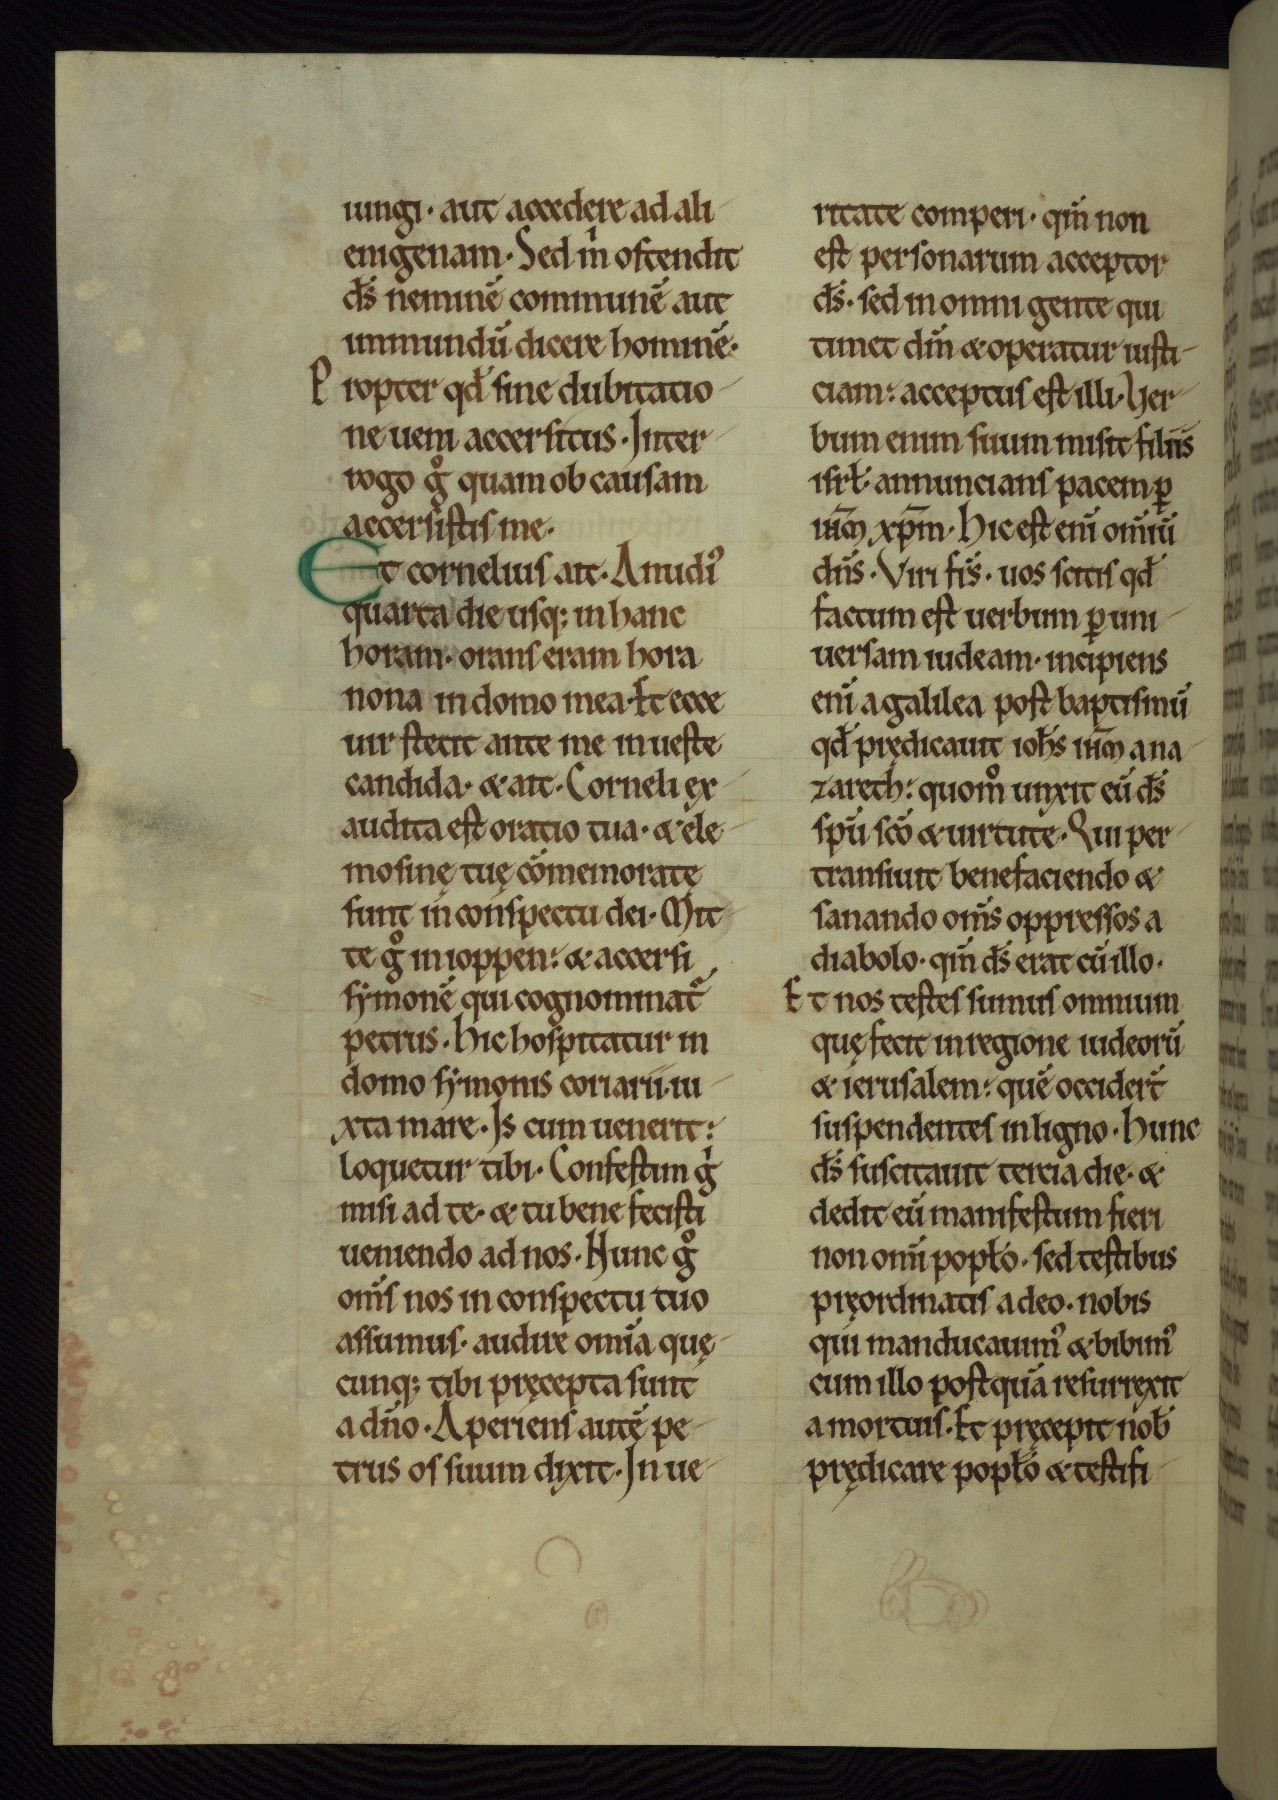 iungi· aut accedere ad ali
enigenam· Sed m̅ ostendit
ds̅ neminē communē aut
immundū dicere hominē·
Propter qd̅ sine dubitatio
ne ueni accersitus· Inter
rogo gͦ quam ob causam
accersistis me·
Et cornelius ait· A nudi᷒
quarta die usq; in hanc
horam· orans eram hora
nona in domo mea· Et ecce
uir stetit ante me in ueste
candida· & ait· Corneli ex
audita est oratio tua· & ele
mosinę tuę cōmemoratę
sunt in conspectu dei· Mit
te gͦ in ioppen: & accersi
symonē qui cognominat᷑
petrus· Hic hospitatur in
domo symonis coriarii· iu
xta mare· Is cum uenerit:
loquetur tibi· Confestim gͥ
misi ad te· & tu bene fecisti
ueniendo ad nos· Hunc gͦ
oms̅ nos in conspectu tuo
assumus· audire omīa quę
cunq; tibi pręcepta sunt
a dn̅o· Aperiens autē pe
trus os suum dixit· In ue
ritate comperi· qm̅ non
est personarum acceptor
ds̅· sed in omni gente qui
timet dm̅ & operatur iusti
ciam: acceptus est illi· Uer
bum enim suum misit filiis
isrl̅· annuncians pacem ꝑ
ihm̅ xp̅m· Hic est eni̅ omiu̅
dn̅s· Viri fr̅s· uos scitis qd̅
factum est uerbum ꝑ uni
uersam iudeam· incipiens
eni̅ a galilea post baptismū
qd̅ prędicauit ioh̅s ihm̅ a na
zareth: quom̊ unxit eū ds̅
spu̅ sco̅ & uirtute· Qui per
transiuit benefaciendo &
sanando oms̅ oppressos a
diabolo· qm̅ ds̅ erat cū illo·
Et nos testes sumus omnium
quę fecit in regione iudeorū
& ierusalem: quē occidert̅
suspendentes in ligno· Hunc
ds̅ suscitauit tercia die· &
dedit eū manifestum fieri
non omi̅ popl̅o· sed testibus
pręordinatis a deo· nobis
qui manducauim᷒ & bibim᷒
cum illo postquā resurrexit
a mortuis· Et pręcepit nob̅
prędicare popl̅o & testifi